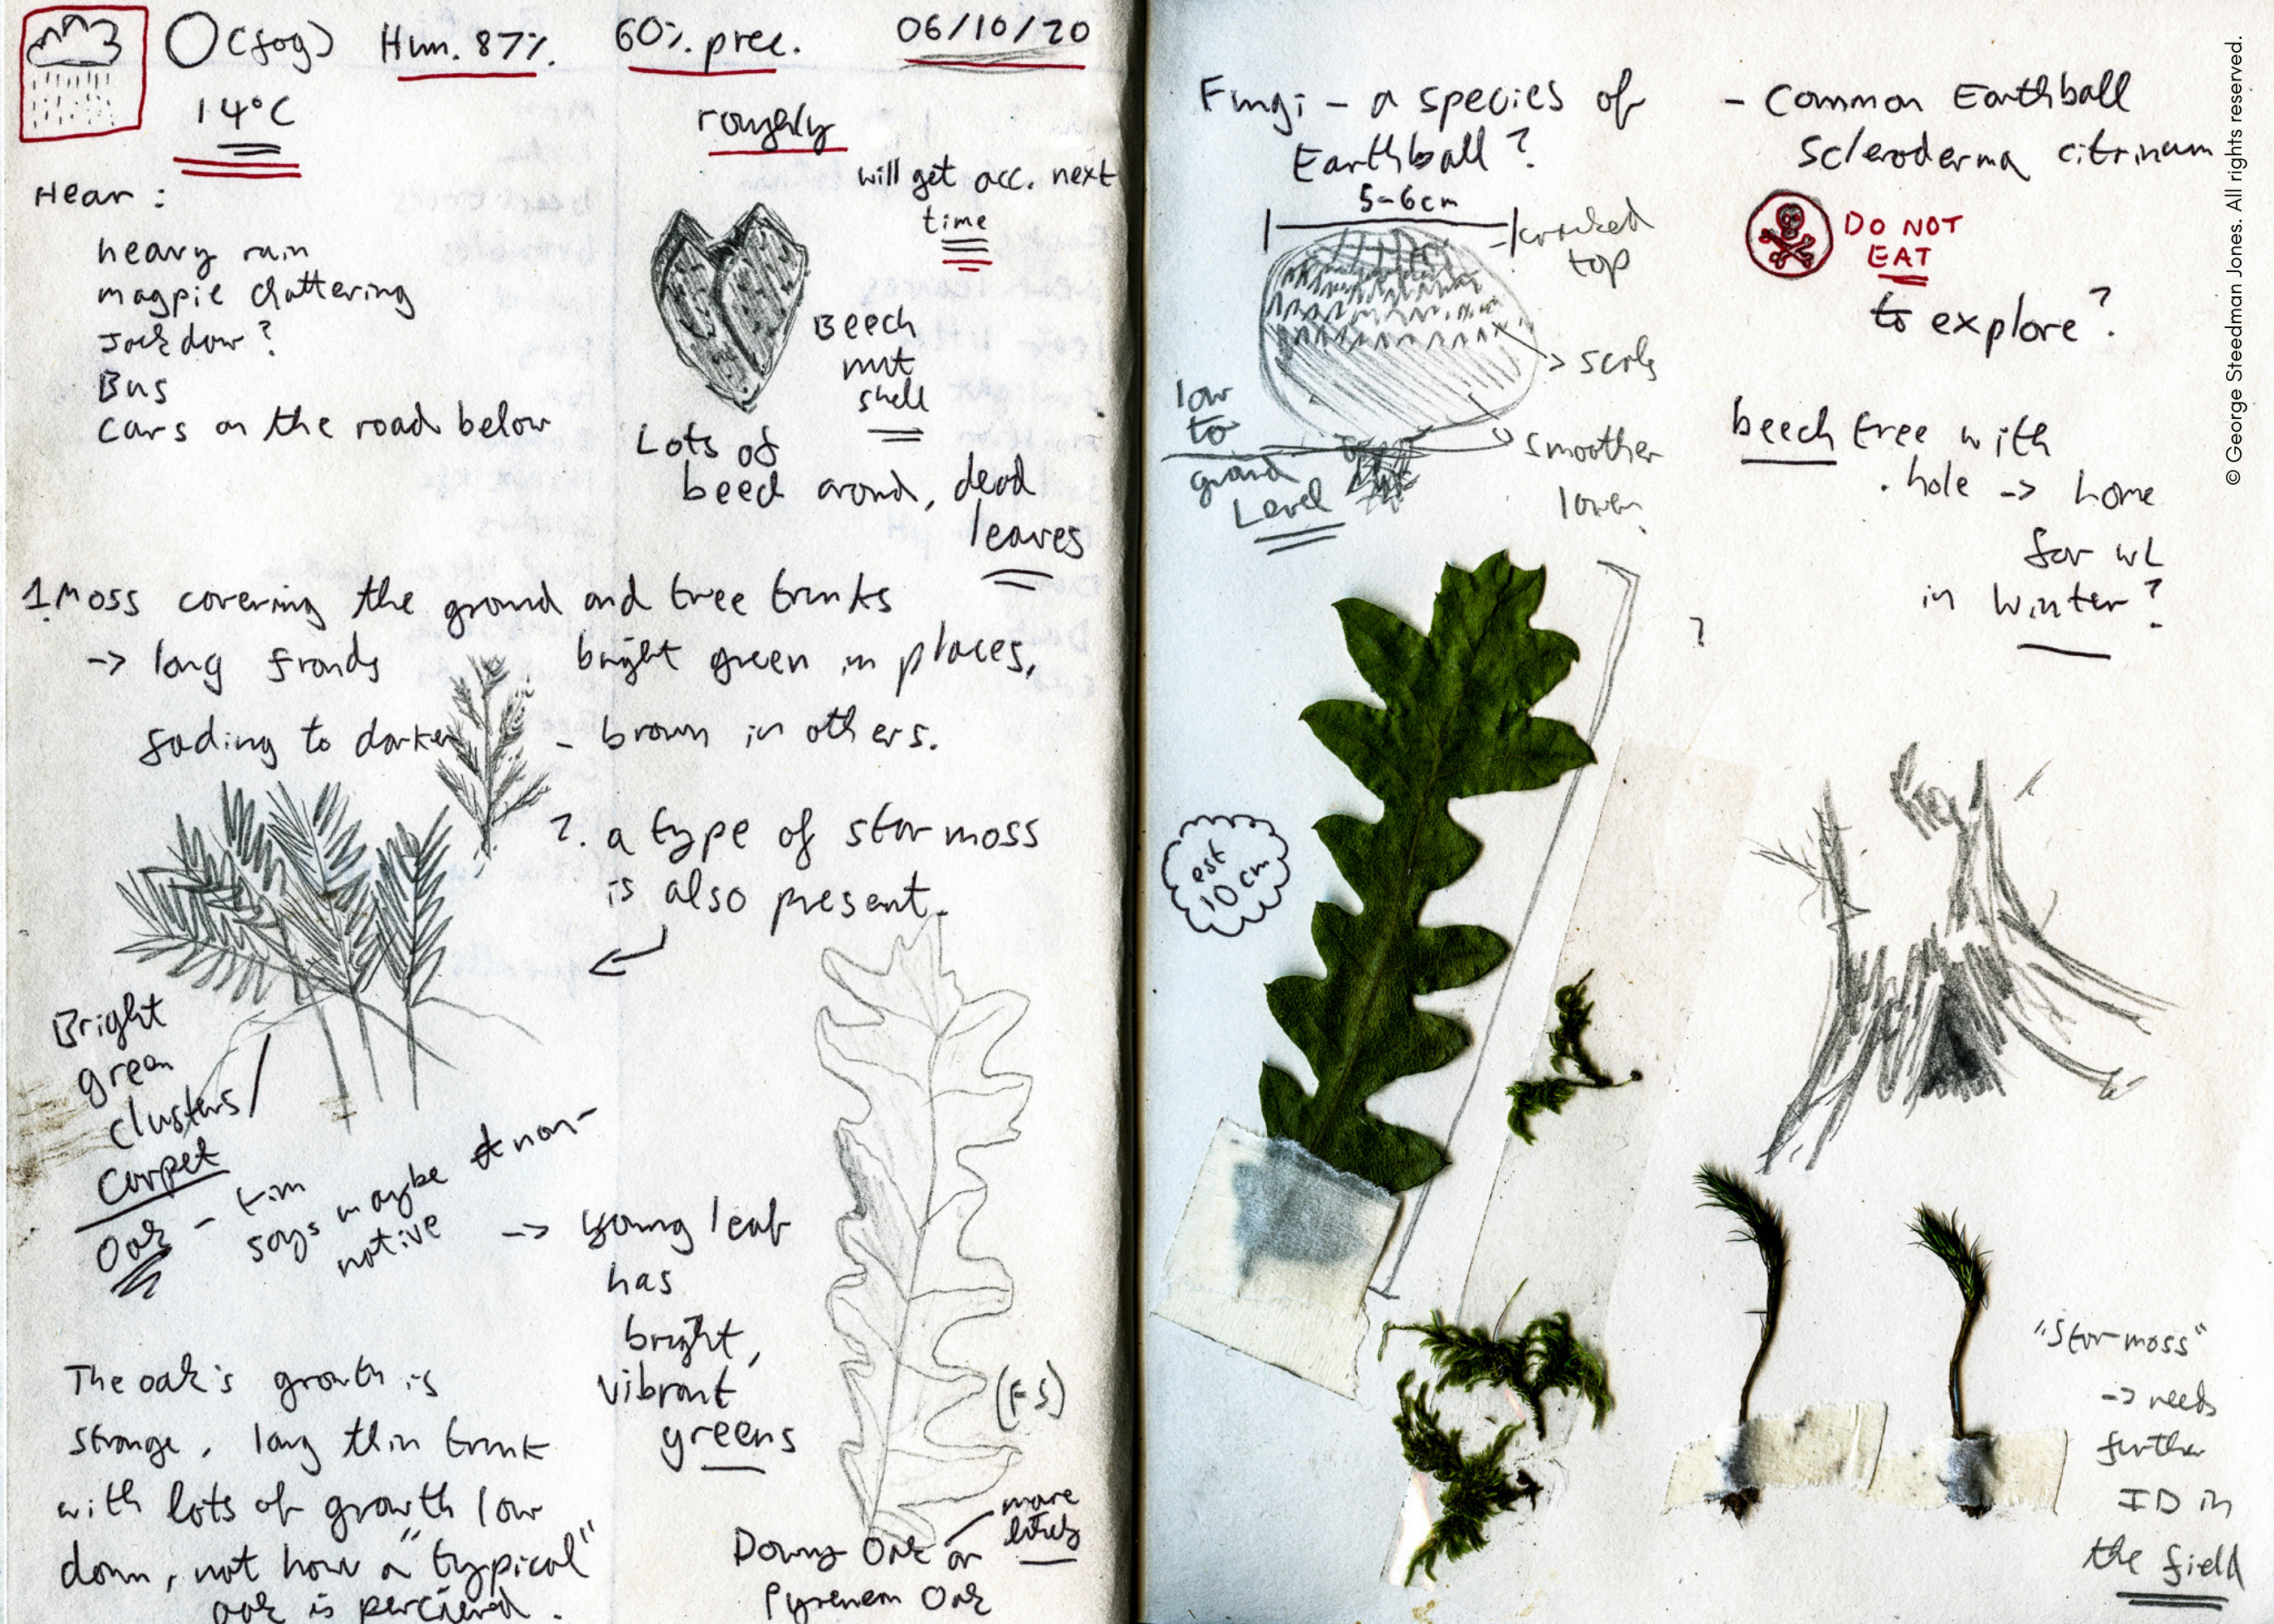 O (fog) Hum. 87% 60% prec. 06/10/20
14°C
roughly
will get acc. next
time
Hear:
heavy rain
magpie chattering
Jackdaw?
Bus
cars on the road below
Beech
nut
shell
Lots of
beech around, dead
leaves
1. Moss covering the ground and tree trunks
-> long fronds bright green in places,
fading to darker - brown in others.
2. a type of star moss
is also present.
Bright
green
clusters/
carpet
Oak - Tim
says maybe non-
native
-> young leaf
has
bright,
vibrant
greens
The oak's growth is
strange, long thin trunk
with lots of growth low
down, not how a "typical"
oak is percieved.
(FS)
more
likely
Downy Oak or
Pyrenean Oak
Fungi - a species of
Earthball?
5-6cm
cracked
top
scales
smoother
lower
low
to
ground
Level
- Common Earthball
Scleroderma citrinum
DO NOT
EAT
to explore?
beech tree with
hole -> home
for WL
in winter?
?
est
10cm
"Star moss"
-> needs
further
ID in
the field
© George Steedman Jones. All rights reserved.